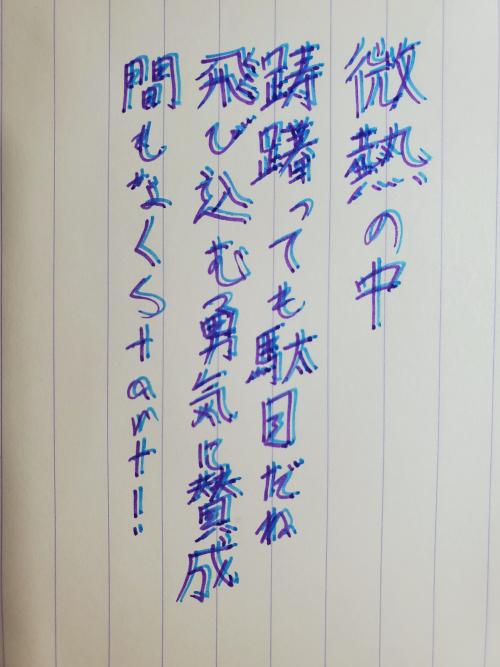 微熱の中
躊躇っても駄目だね
飛び込む勇気に賛成
間もなくStart!!